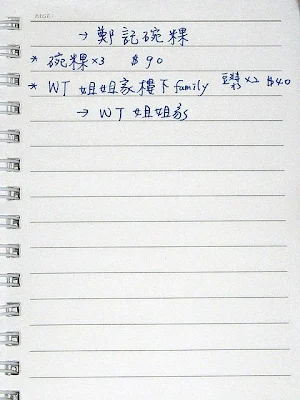 PAGE:
→ 鄭記碗粿
* 碗粿×3 $90
* WJ 姐姐家樓下family 豆漿×2 $40
→ WJ 姐姐家